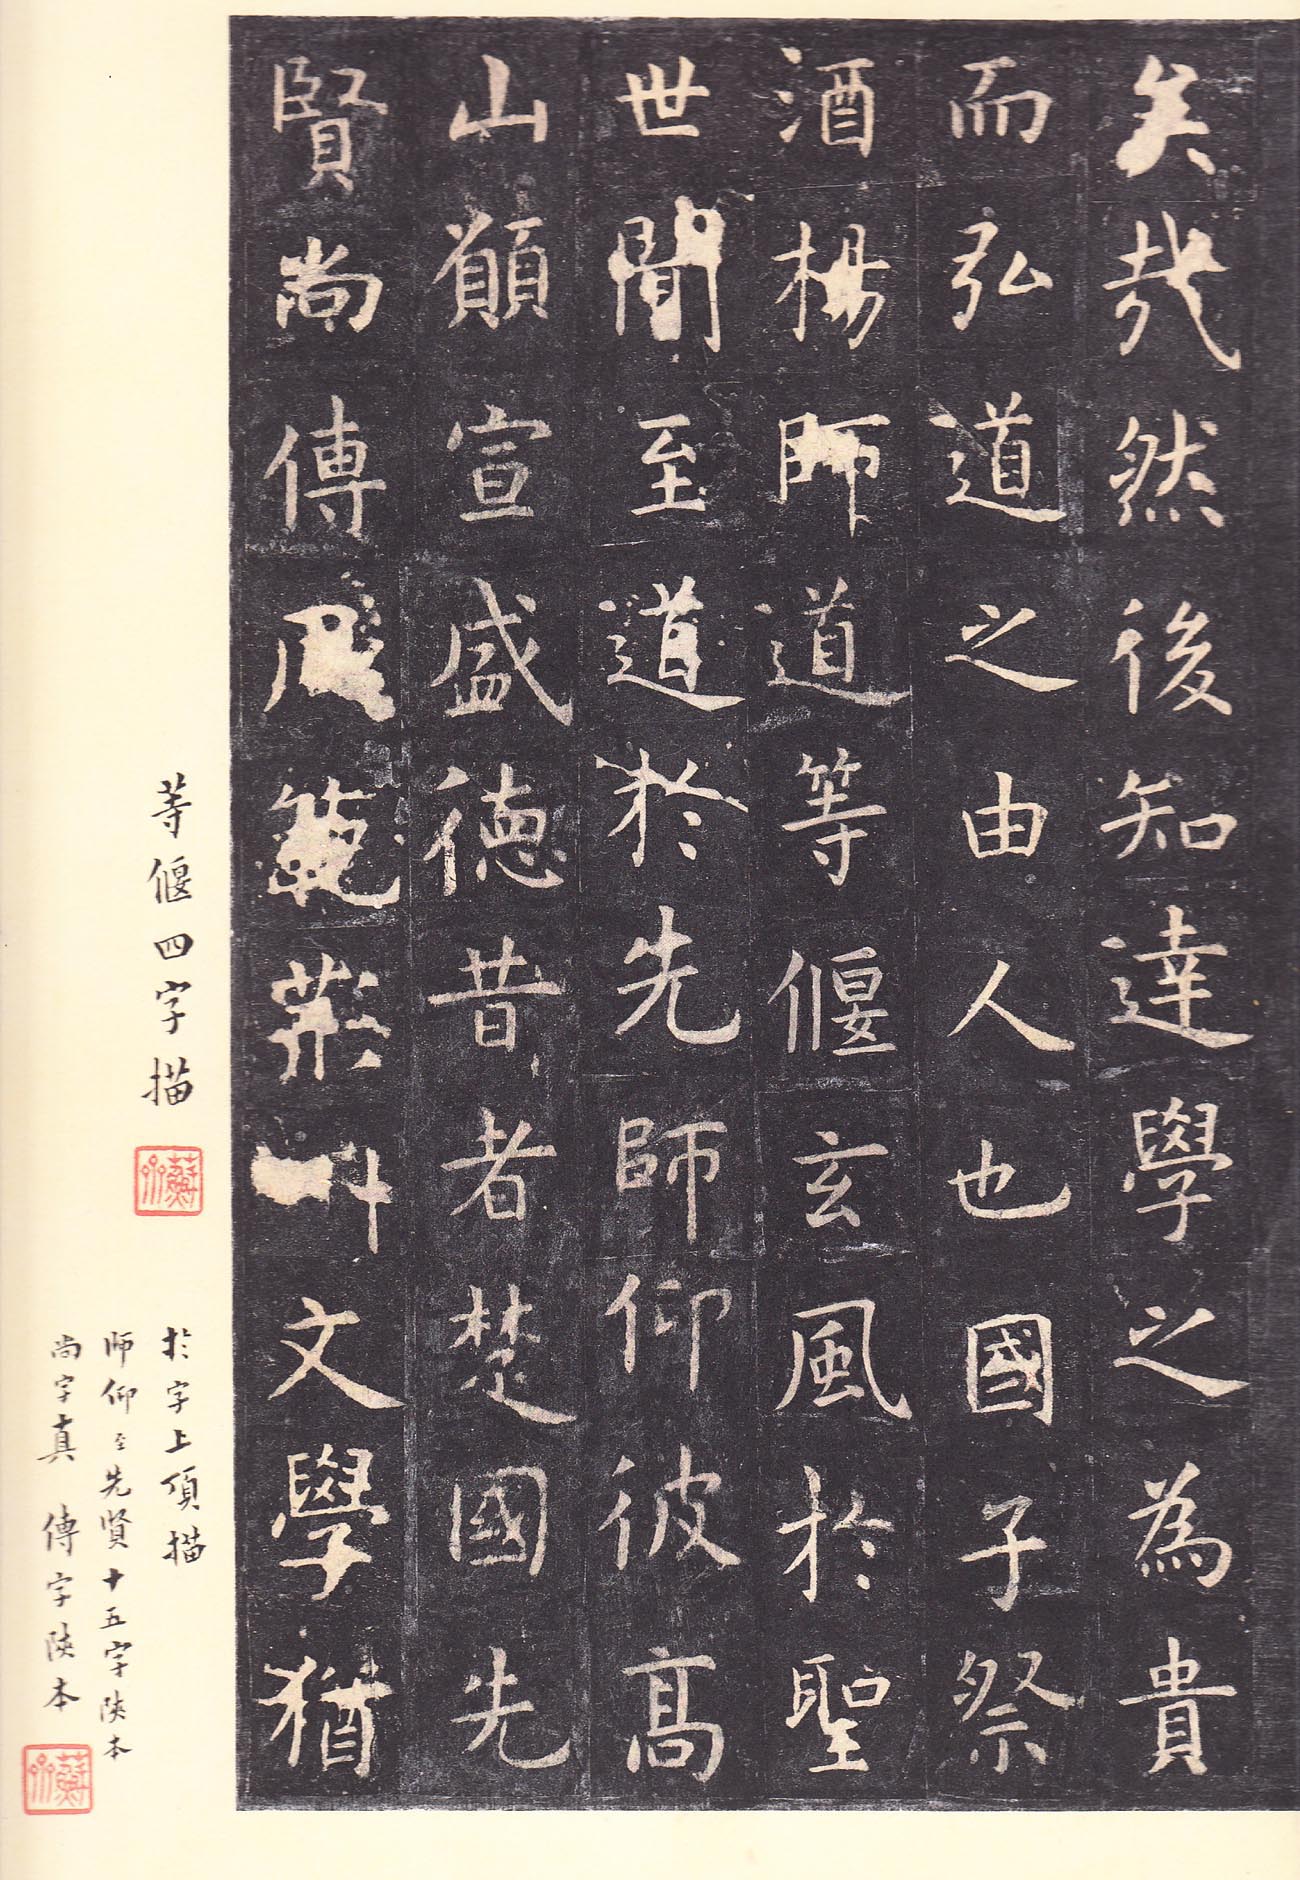 矣哉然後知達學之為貴
而弘道之由人也國子祭
酒楊師道等偃玄風於聖
世闡至道於先師仰彼高
山願宣盛德昔者楚國先
賢尚傳風範荊州文學猶
等偃四字描
蘇州
於字上頂描
師仰至先賢十五字陝本
尚字真 傳字陝本
蘇州